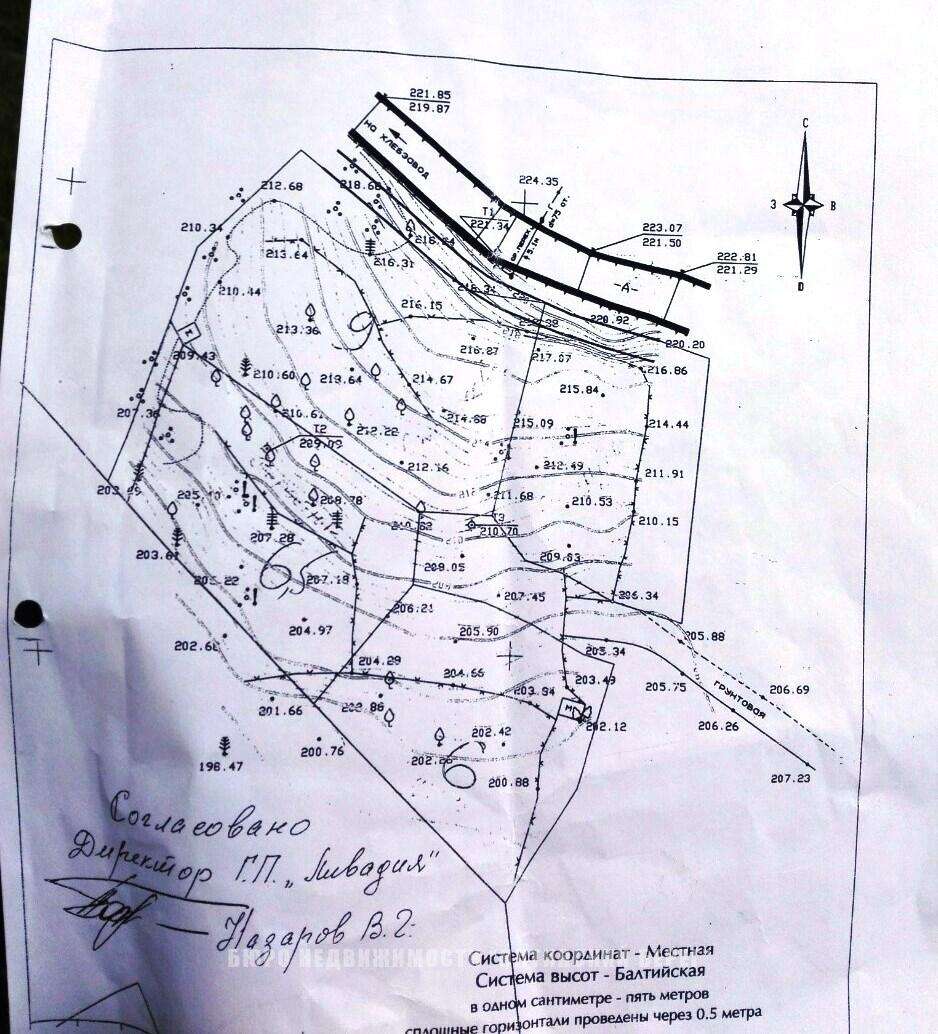 221.85
219.87
НА ХЛЕБЗОВОД
С
З В
D
224.35
212.68
218.68
Т1
221.34
223.07
221.50
210.34
216.24
213.64
216.31
222.81
221.29
-А-
210.44
216.15
213.36
220.92
220.20
209.43
216.27
217.07
216.86
210.60
213.64
214.67
215.84
207.38
210.61
214.88
215.09
214.44
Т2
209.09
212.22
212.16
212.49
211.91
208.78
211.68
210.53
210.15
Т3
210.70
207.28
203.61
209.63
208.05
205.22
207.18
207.45
206.34
206.21
204.97
205.90
205.88
202.61
205.34
204.29
204.66
203.49
205.75
ГРУНТОВАЯ
206.69
203.84
201.66
202.86
202.12
206.26
202.42
200.76
198.47
200.88
207.23
Согласовано
Директор Г.П. „Ливадия"
Назаров В.Г.
Система координат - Местная
Система высот - Балтийская
в одном сантиметре - пять метров
сплошные горизонтали проведены через 0.5 метра